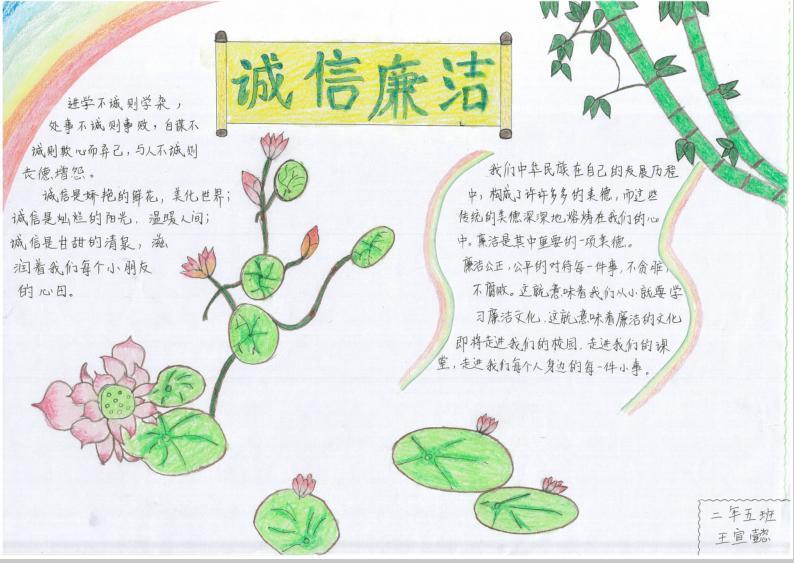 诚信廉洁
进学不诚则学杂，
处事不诚则事败，自谋不
诚则欺心而弃己，与人不诚则
丧德增怨。
诚信是娇艳的鲜花，美化世界；
诚信是灿烂的阳光，温暖人间；
诚信是甘甜的清泉，滋
润着我们每个小朋友
的心田。
我们中华民族在自己的发展历程
中，构成了许许多多的美德，而这些
传统的美德深深地熔铸在我们的心
中。廉洁是其中重要的一项美德。
廉洁公正，公平的对待每一件事，不贪脏，
不腐败。这就意味着我们从小就要学
习廉洁文化，这就意味着廉洁的文化
即将走进我们的校园，走进我们的课
堂，走进我们每个人身边的每一件小事。
二年五班
王宣懿